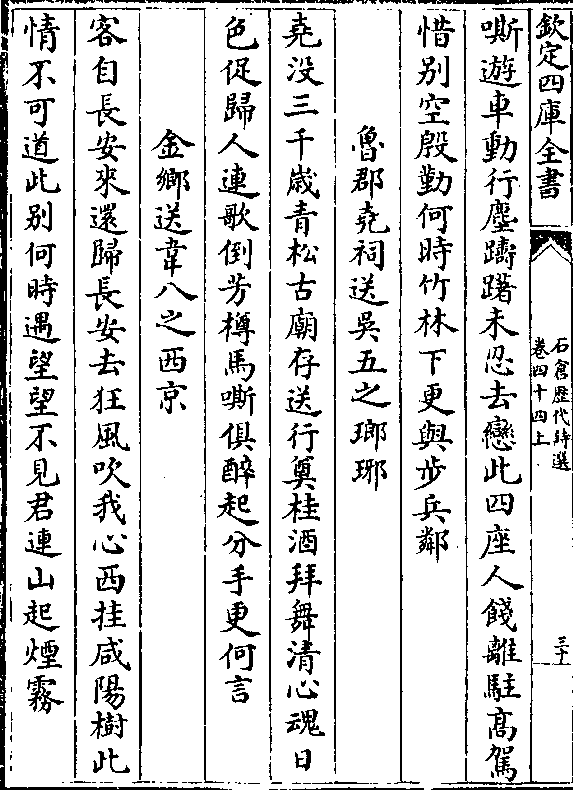 欽定四庫全書
石倉歷代詩選
卷四十四上
三十一
嘶遊車動行塵躊躇未忍去戀此四座人餞離駐高駕
惜别空殷勤何時竹林下更與步兵鄰
魯郡堯祠送吳五之瑯琊
堯没三千歲青松古廟存送行奠桂酒拜舞清心魂日
色促歸人連歌倒芳樽馬嘶俱醉起分手更何言
金鄉送韋八之西京
客自長安來還歸長安去狂風吹我心西挂咸陽樹此
情不可道此别何時遇望望不見君連山起煙霧